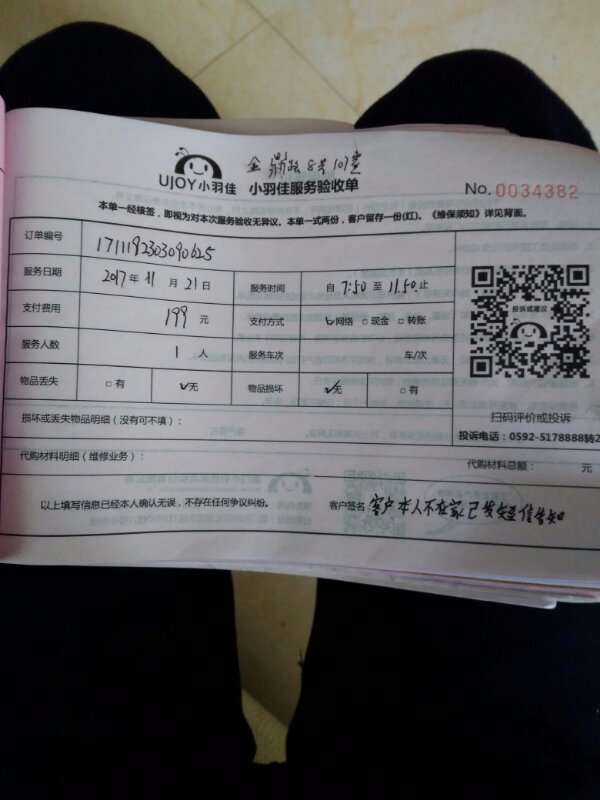 UJOY小羽佳 小羽佳服务验收单
No. 0034382
本单一经核签，即视为对本次服务验收无异议。本单一式两份，客户留存一份(红)。《维保须知》详见背面。
订单编号 1711192303090625
服务日期 2017年 11 月 21 日 服务时间 自 7:50 至 11.50.止
支付费用 199 元 支付方式 ✓网络 □现金 □转账
服务人数 1 人 服务车次 车/次
物品丢失 □有 ✓无 物品损坏 ✓无 □有
投诉或建议
扫码评价或投诉
投诉电话：0592-5178888转2
损坏或丢失物品明细（没有可不填）：
代购材料明细（维修业务）： 代购材料总额： 元
以上填写信息已经本人确认无误，不存在任何争议纠纷。 客户签名 客户本人不在家已发短信告知